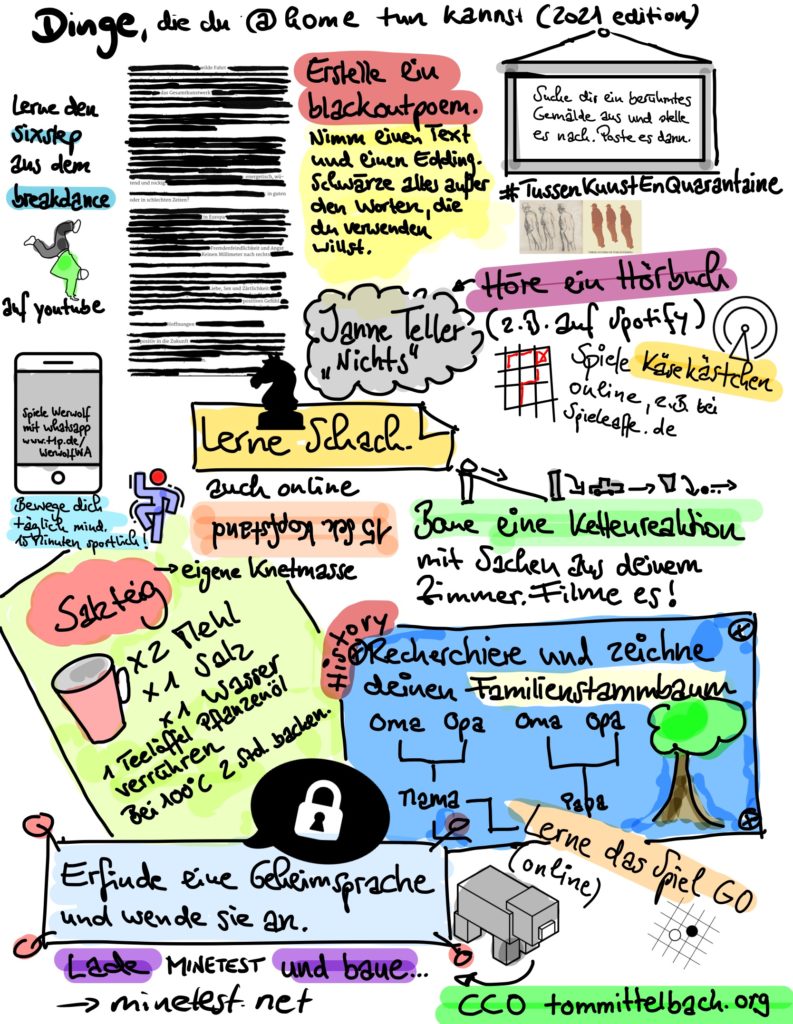 Dinge, die du @ home tun kannst (2021 edition)
Lerne den
sixstep
aus dem
breakdance
auf youtube
wilde Fahrt
das Gesamtkunstwerk
energetisch, wü-
tend und rockig
in guten
oder in schlechten Zeiten?
in Europa
Fremdenfeindlichkeit und Angst
Keinen Millimeter nach rechts
Liebe, Sex und Zärtlichkeit
positives Gefühl
Hoffnungen
positiv in die Zukunft
Erstelle ein
blackoutpoem.
Nimm einen Text
und einen Edding.
Schwärze alles außer
den Worten, die
du verwenden
willst.
Suche dir ein berühmtes
Gemälde aus und stelle
es nach. Poste es dann.
#TussenKunstEnQuarantaine
Höre ein Hörbuch
(z.B. auf Spotify)
Janne Teller
"Nichts"
Spiele Käsekästchen
online, z.B. bei
Spieleaffe.de
Spiele Werwolf
mit Whatsapp
www.t1p.de/
WerwolfWA
Bewege dich
täglich mind.
15 Minuten sportlich!
Lerne Schach.
auch online
15 sek Kopfstand
Baue eine Kettenreaktion
mit Sachen aus deinem
Zimmer. Filme es!
Salzteig
→ eigene Knetmasse
x2 Mehl
x1 Salz
x1 Wasser
1 Teelöffel Pflanzenöl
verrühren
Bei 100°C 2 Std. backen.
History
Recherchiere und zeichne
deinen Familienstammbaum
Oma Opa Oma Opa
Mama Papa
Erfinde eine Geheimsprache
und wende sie an.
Lerne das Spiel GO
(online)
Lade MINETEST und baue...
→ minetest.net
CC0 tommittelbach.org